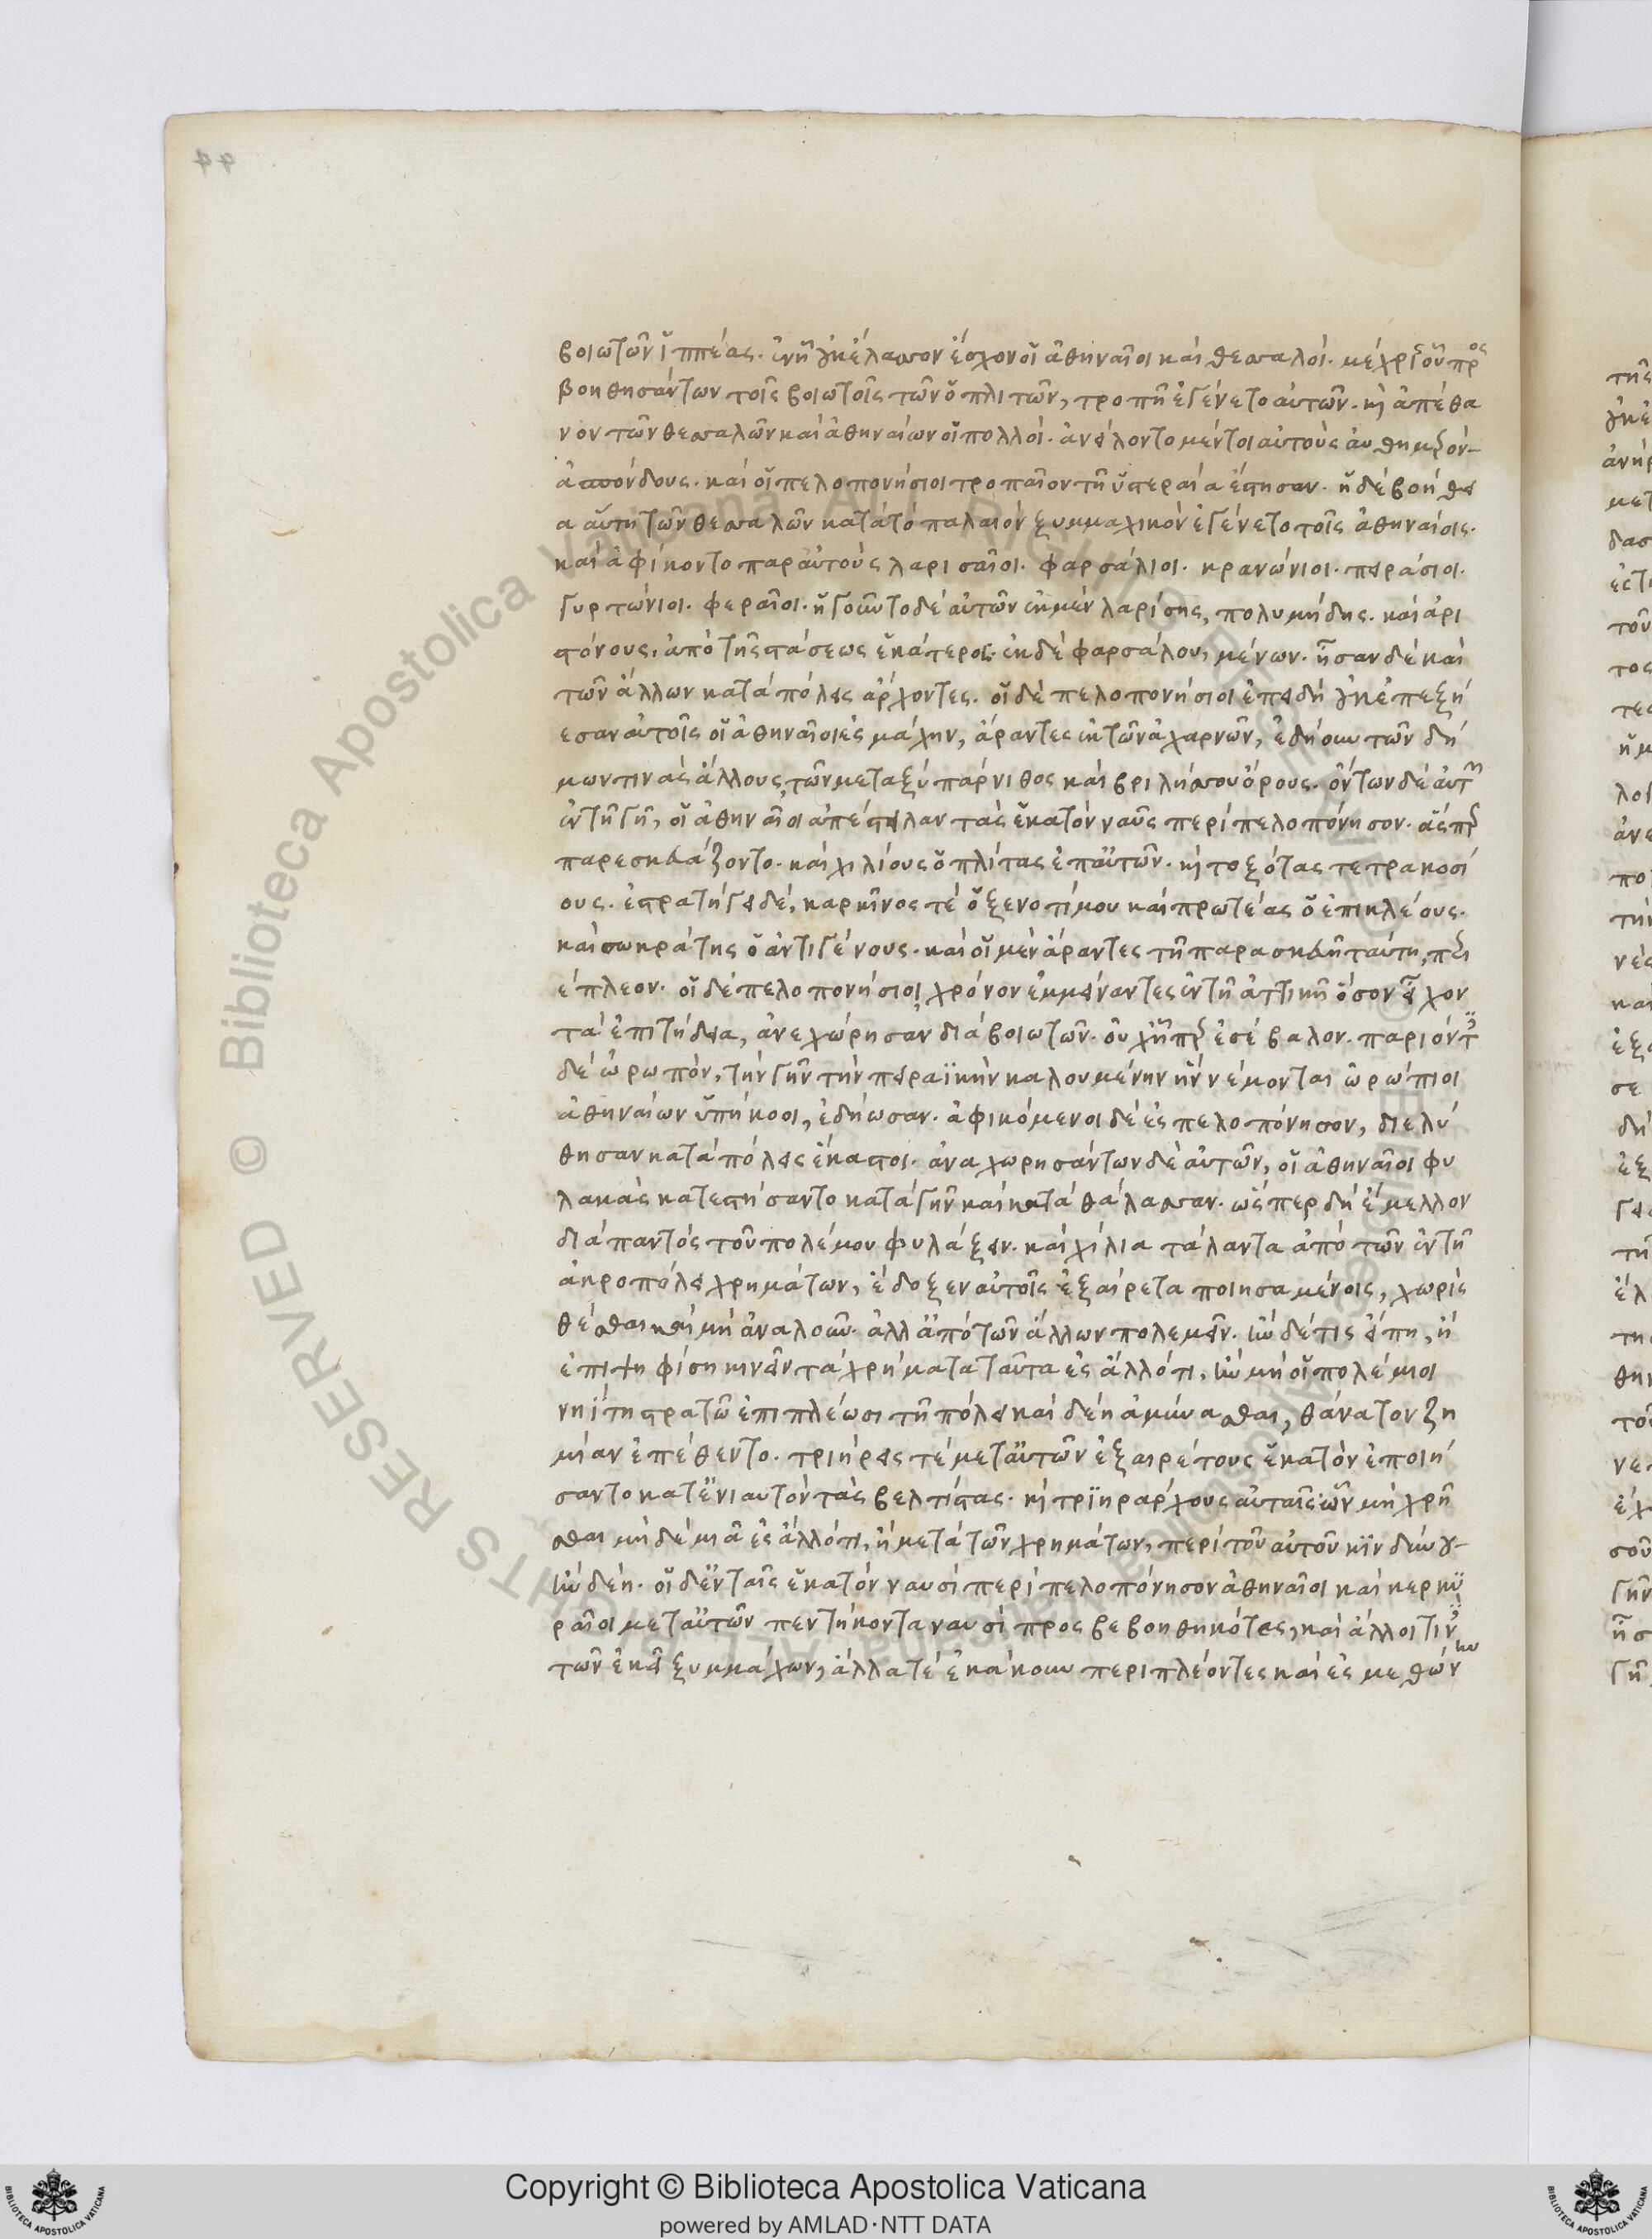 44
βοιωτῶν ἱππέας. ἐν ᾗ οὐκ ἔλασσον ἔσχον οἱ ἀθηναῖοι καὶ θεσσαλοί. μέχρις οὗ προς
βοηθησάντων τοῖς βοιωτοῖς τῶν ὁπλιτῶν, τροπὴ ἐγένετο αὐτῶν. κὶ ἀπέθα
νον τῶν θεσσαλῶν καὶ ἀθηναίων οἱ πολλοί. ἀνείλοντο μέντοι αὐτοὺς αὐθημερὸν
ἀσπόνδους. καὶ οἱ πελοπονήσιοι τροπαῖον τῇ ὑστεραία ἔστησαν. ἡ δὲ βοήθει
α αὕτη τῶν θεσσαλῶν κατὰ τὸ παλαιὸν ξυμμαχικὸν ἐγένετο τοῖς ἀθηναίοις.
καὶ ἀφίκοντο παρ αὐτοὺς λαρισαῖοι. φαρσάλιοι. κρανώνιοι. πειράσιοι.
γυρτώνιοι. φεραῖοι. ἡγοῦντο δὲ αὐτῶν ἐκ μὲν λαρίσης, πολυμήδης. καὶ ἀρι
στόνους, ἀπὸ τῆς στάσεως ἑκάτερος. ἐκ δὲ φαρσάλου, μένων. ἦσαν δὲ καὶ
τῶν ἄλλων κατὰ πόλεις ἄρχοντες. οἱ δὲ πελοπονήσιοι ἐπειδὴ οὐκ ἐπεξή
εσαν αὐτοῖς οἱ ἀθηναῖοι ἐς μάχην, ἄραντες ἐκ τῶν ἀχαρνῶν, ἐδήουν τῶν δή
μων τινὰς ἄλλους, τῶν μεταξὺ πάρνιθος καὶ βριλήσσου ὄρους. ὄντων δὲ αὐτῶν
ἐν τῇ γῇ, οἱ ἀθηναῖοι ἀπέστειλαν τὰς ἑκατὸν ναῦς περὶ πελοπόνησον. ἅσπερ
παρεσκευάζοντο. καὶ χιλίους ὁπλίτας ἐπ αὐτῶν. κὶ τοξότας τετρακοσί
ους. ἐστρατήγει δὲ, καρκῖνος τὲ ὁ ξενοτίμου καὶ πρωτέας ὁ ἐπικλέους.
καὶ σωκράτης ὁ ἀντιγένους. καὶ οἱ μὲν ἄραντες τῇ παρασκευῇ ταύτη, περι
έπλεον. οἱ δὲ πελοπονήσιοι, χρόνον ἐμμείναντες ἐν τῇ ἀττικῇ ὅσον εἶχον
τὰ ἐπιτήδεια, ἀνεχώρησαν διὰ βοιωτῶν. οὐχ ᾗπερ ἐσέβαλον. παριόντες
δὲ ὠρωπὸν, τὴν γῆν τὴν πειραϊκὴν καλουμένην ἣν νέμονται ὠρώπιοι
ἀθηναίων ὑπήκοοι, ἐδήωσαν. ἀφικόμενοι δὲ ἐς πελοπόνησον, διελύ
θησαν κατὰ πόλεις ἕκαστοι. ἀναχωρησάντων δὲ αὐτῶν, οἱ ἀθηναῖοι φυ
λακὰς κατεστήσαντο κατὰ γῆν καὶ κατὰ θάλασσαν. ὥσπερ δὴ ἔμελλον
διὰ παντὸς τοῦ πολέμου φυλάξειν. καὶ χίλια τάλαντα ἀπὸ τῶν ἐν τῇ
ἀκροπόλει χρημάτων, ἔδοξεν αὐτοῖς ἐξαίρετα ποιησαμένοις, χωρὶς
θέσθαι καὶ μὴ ἀναλοῦν. ἀλλ ἀπὸ τῶν ἄλλων πολεμεῖν. ἢν δέ τις εἴπη, ἢ
ἐπιψηφίση κινεῖν τὰ χρήματα ταῦτα ἐς ἄλλό τι, ἢν μὴ οἱ πολέμιοι
νηίτη στρατῷ ἐπιπλέωσι τῇ πόλει καὶ δέη ἀμύνασθαι, θάνατον ζη
μίαν ἐπέθεντο. τριήρεις τὲ μετ αὐτῶν ἐξαιρέτους ἑκατὸν ἐποιή
σαντο κατ ἐνιαυτὸν τὰς βελτίστας. κὶ τριηράρχους αὐταῖς ὧν μὴ χρῆ
σθαι μὴδὲ μιᾶ ἐς ἄλλό τι, ἢ μετὰ τῶν χρημάτων, περὶ τοῦ αὐτοῦ κινδύνου
ἢν δέη. οἱ δ ἐν ταῖς ἑκατὸν ναυσὶ περὶ πελοπόνησον ἀθηναῖοι καὶ κερκυ
ραῖοι μετ αὐτῶν πεντήκοντα ναυσὶ προσβεβοηθηκότες, καὶ ἄλλοι τινὲς
τῶν ἐκεῖ ξυμμάχων, ἄλλα τὲ ἐκάκουν περιπλέοντες καὶ ἐς μεθώνην
Copyright © Biblioteca Apostolica Vaticana
powered by AMLAD·NTT DATA